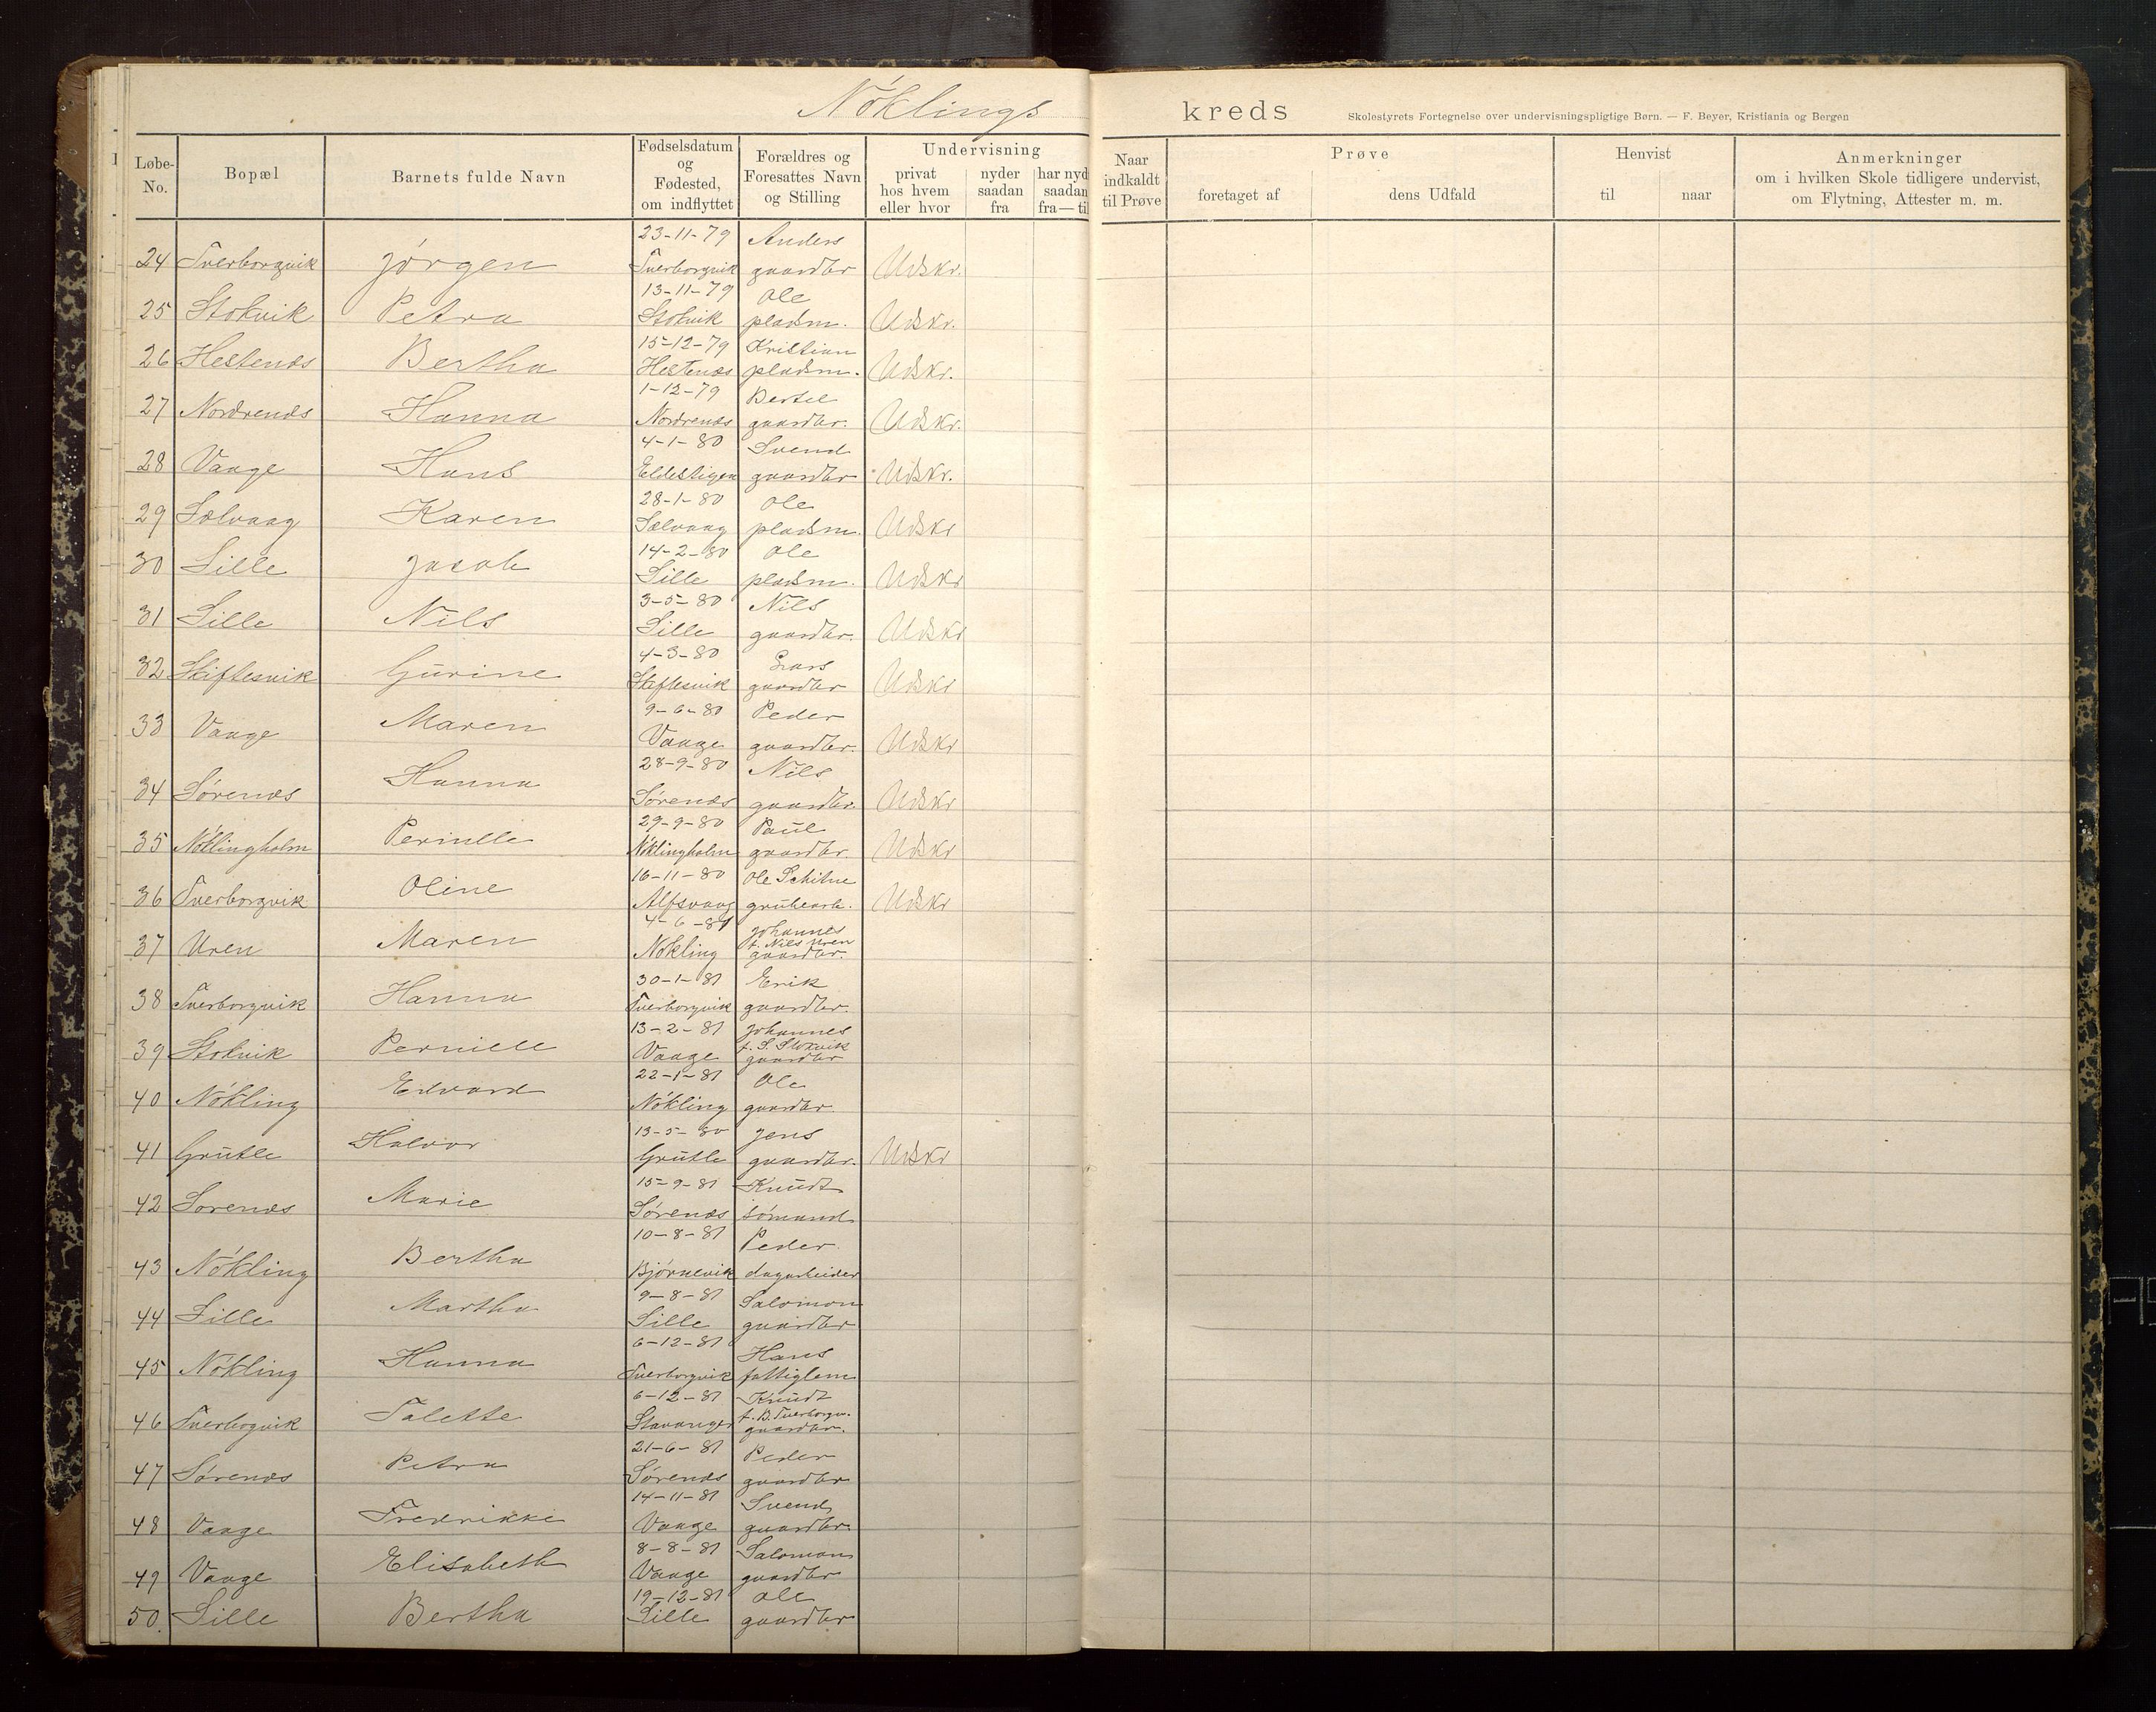 Nöklings kreds
Skolestyrets Fortegnelse over undervisningspligtige Børn. — F. Beyer, Kristiania og Bergen
Løbe-No. Bopæl Barnets fulde Navn Fødselsdatum og Fødested, om indflyttet Forældres og Foresattes Navn og Stilling Undervisning privat hos hvem eller hvor nyder saadan fra har nyd saadan fra—til Naar indkaldt til Prøve Prøve foretaget af dens Udfald Henvist til naar Anmerkninger om i hvilken Skole tidligere undervist, om Flytning, Attester m. m.
23-11-79 Anders
24 Tverborgvik Jörgen Tverborgvik gaardbr Udskr.
13-11-79 Ole
25 Stokvik Petra Stokvik pladsm. Udskr.
15-12-79 Kristian
26 Hestenæs Bertha Hestenæs pladsm. Udskr.
1-12-79 Bertel
27 Nordrenæs Hanna Nordrenæs gaardbr. Udskr.
4-1-80 Svend
28 Vaage Hans Eldestigen gaardbr Udskr.
28-1-80 Ole
29 Sælvaag Karen Sælvaag pladsm. Udskr
14-2-80 Ole
30 Lille Jacob Lille pladsm. Udskr
3-5-80 Nils
31 Lille Nils Lille gaardbr. Udskr
4-3-80 Lars
32 Stiftesvik Gurine Stiftesvik gaardbr Udskr
9-6-80 Peder
33 Vaage Maren Vaage gaardbr. Udskr
28-9-80 Nils
34 Sørenæs Hanna Sørenæs gaardbr. Udskr
29-9-80 Paul
35 Nöklingholm Pernille Nöklingholm gaardbr. Udskr
16-11-80 Ole
36 Tverborgvik Oline Alfsvaag grubearb. Udskr
4-6-81 Johannes
f. Nils Uren
37 Uren Maren Nökling gaardbr.
30-1-81 Erik
38 Tverborgvik Hanna Tverborgvik gaardbr.
13-2-81 Johannes
f. S. Stokvik
39 Stokvik Pernille Vaage gaardbr
22-1-81 Ole
40 Nökling Edvard Nökling gaardbr.
13-5-80 Jens
41 Grutle Halvor Grutle gaardbr. Udskr
15-9-81 Knudt
42 Sørenæs Marie Sørenæs sömand
10-8-81 Peder
43 Nökling Bertha Björnevik dagarbeider
9-8-81 Salomon
44 Lille Martha Lille gaardbr
6-12-81 Hans
45 Nökling Hanna Tverborgvik fattiglem
6-12-81 Knudt
f. B. Tverborgv.
46 Tverborgvik Talette Stavanger gaardbr.
21-6-81 Peder
47 Sørenæs Petra Sørenæs gaardbr
14-11-81 Svend
48 Vaage Fredrikke Vaage gaardbr.
8-8-81 Salomon
49 Vaage Elisabeth Vaage gaardbr
19-12-81 Ole
50. Lille Bertha Lille gaardbr